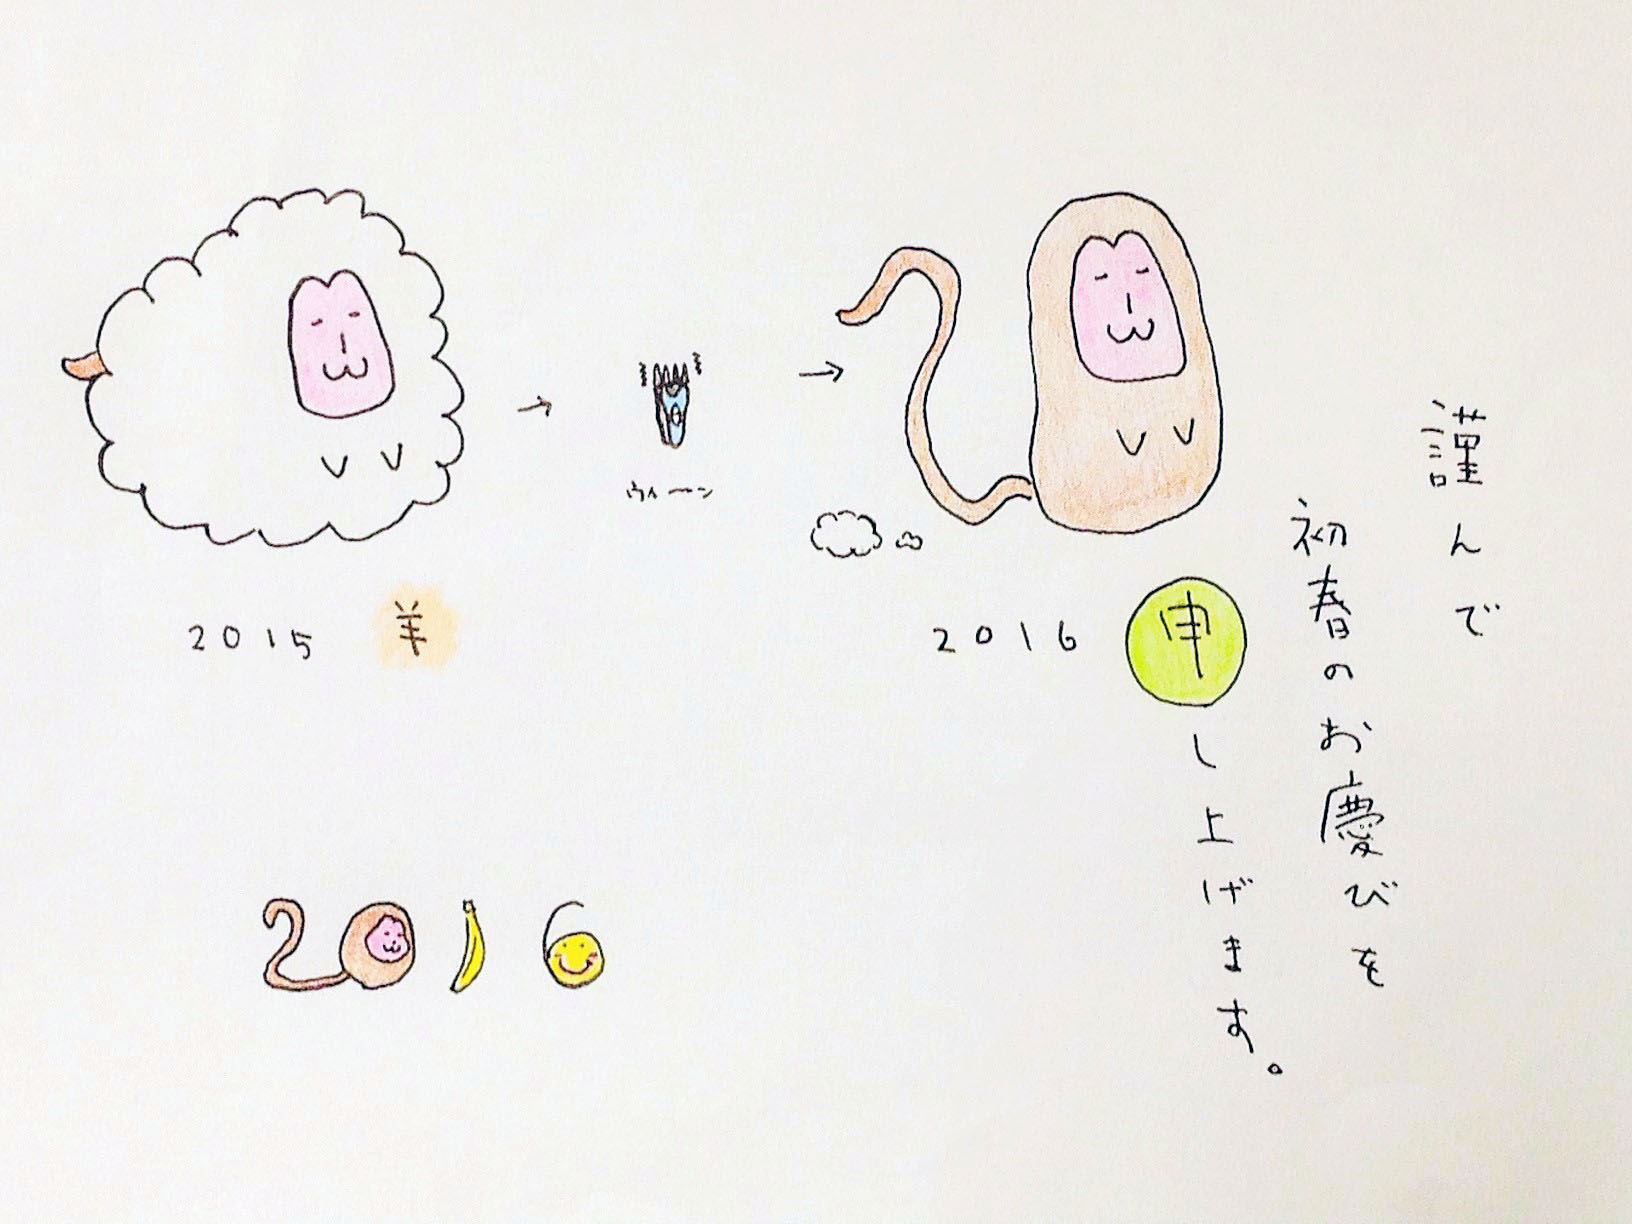 謹んで
初春のお慶びを
申し上げます。
ウィーン
2015 羊
2016
2016